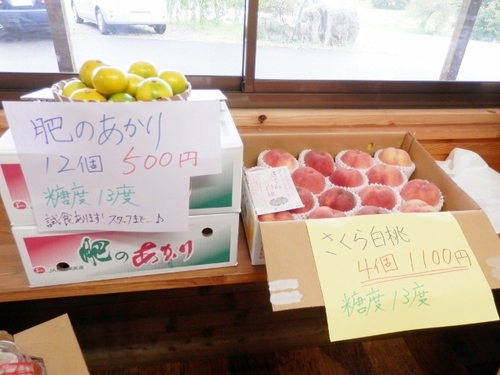 肥のあかり
12個 500円
糖度13度
試食あります! スタッフまで…♪
肥のあかり
さくら白桃
4個 1100円
糖度13度